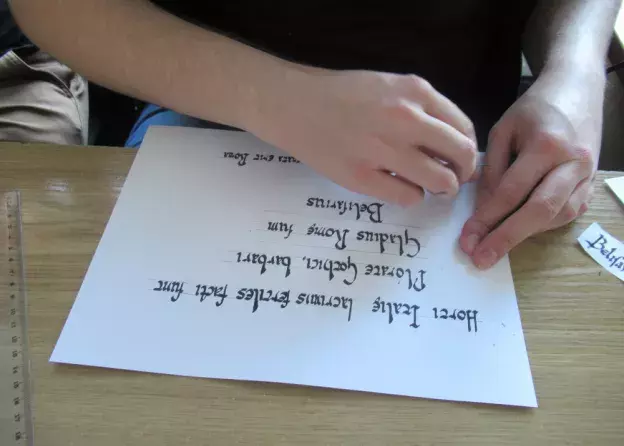 Horti Italię lacrimis fertiles facti ſunt
Plorate Gothici, barbari
Gladius Romę ſum
Beliſarius
erit Roma